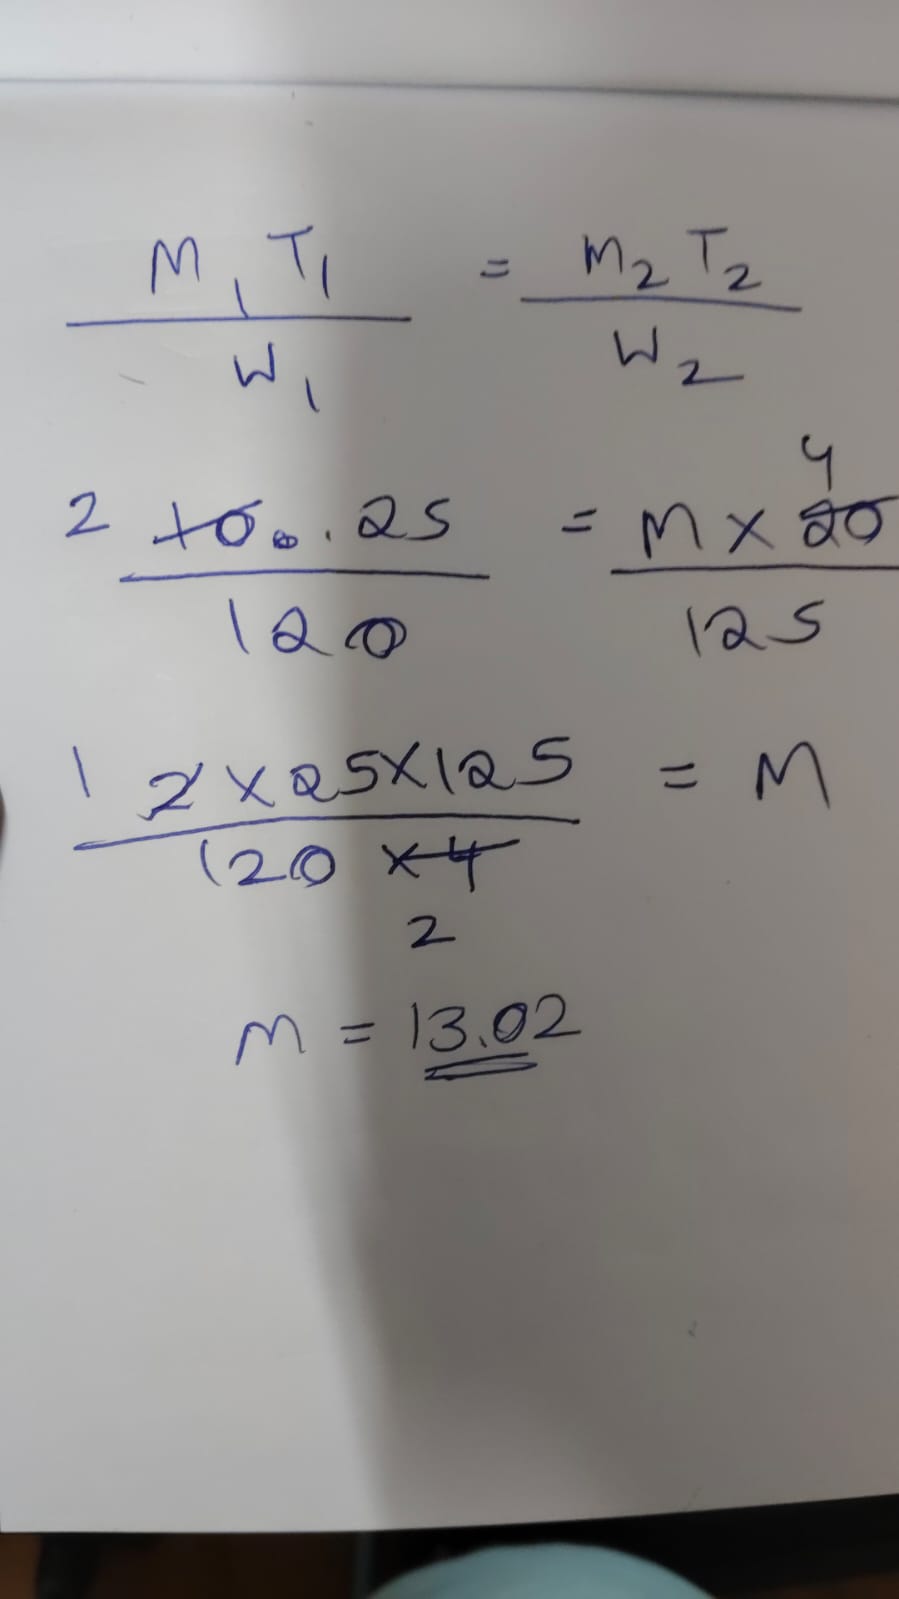 M₁ T₁ / W₁ = M₂ T₂ / W₂
4
2 10 . 25 / 120 = M × 20 / 125
1 2 × 25 × 125 / 120 × 4 = M
2
M = 13.02